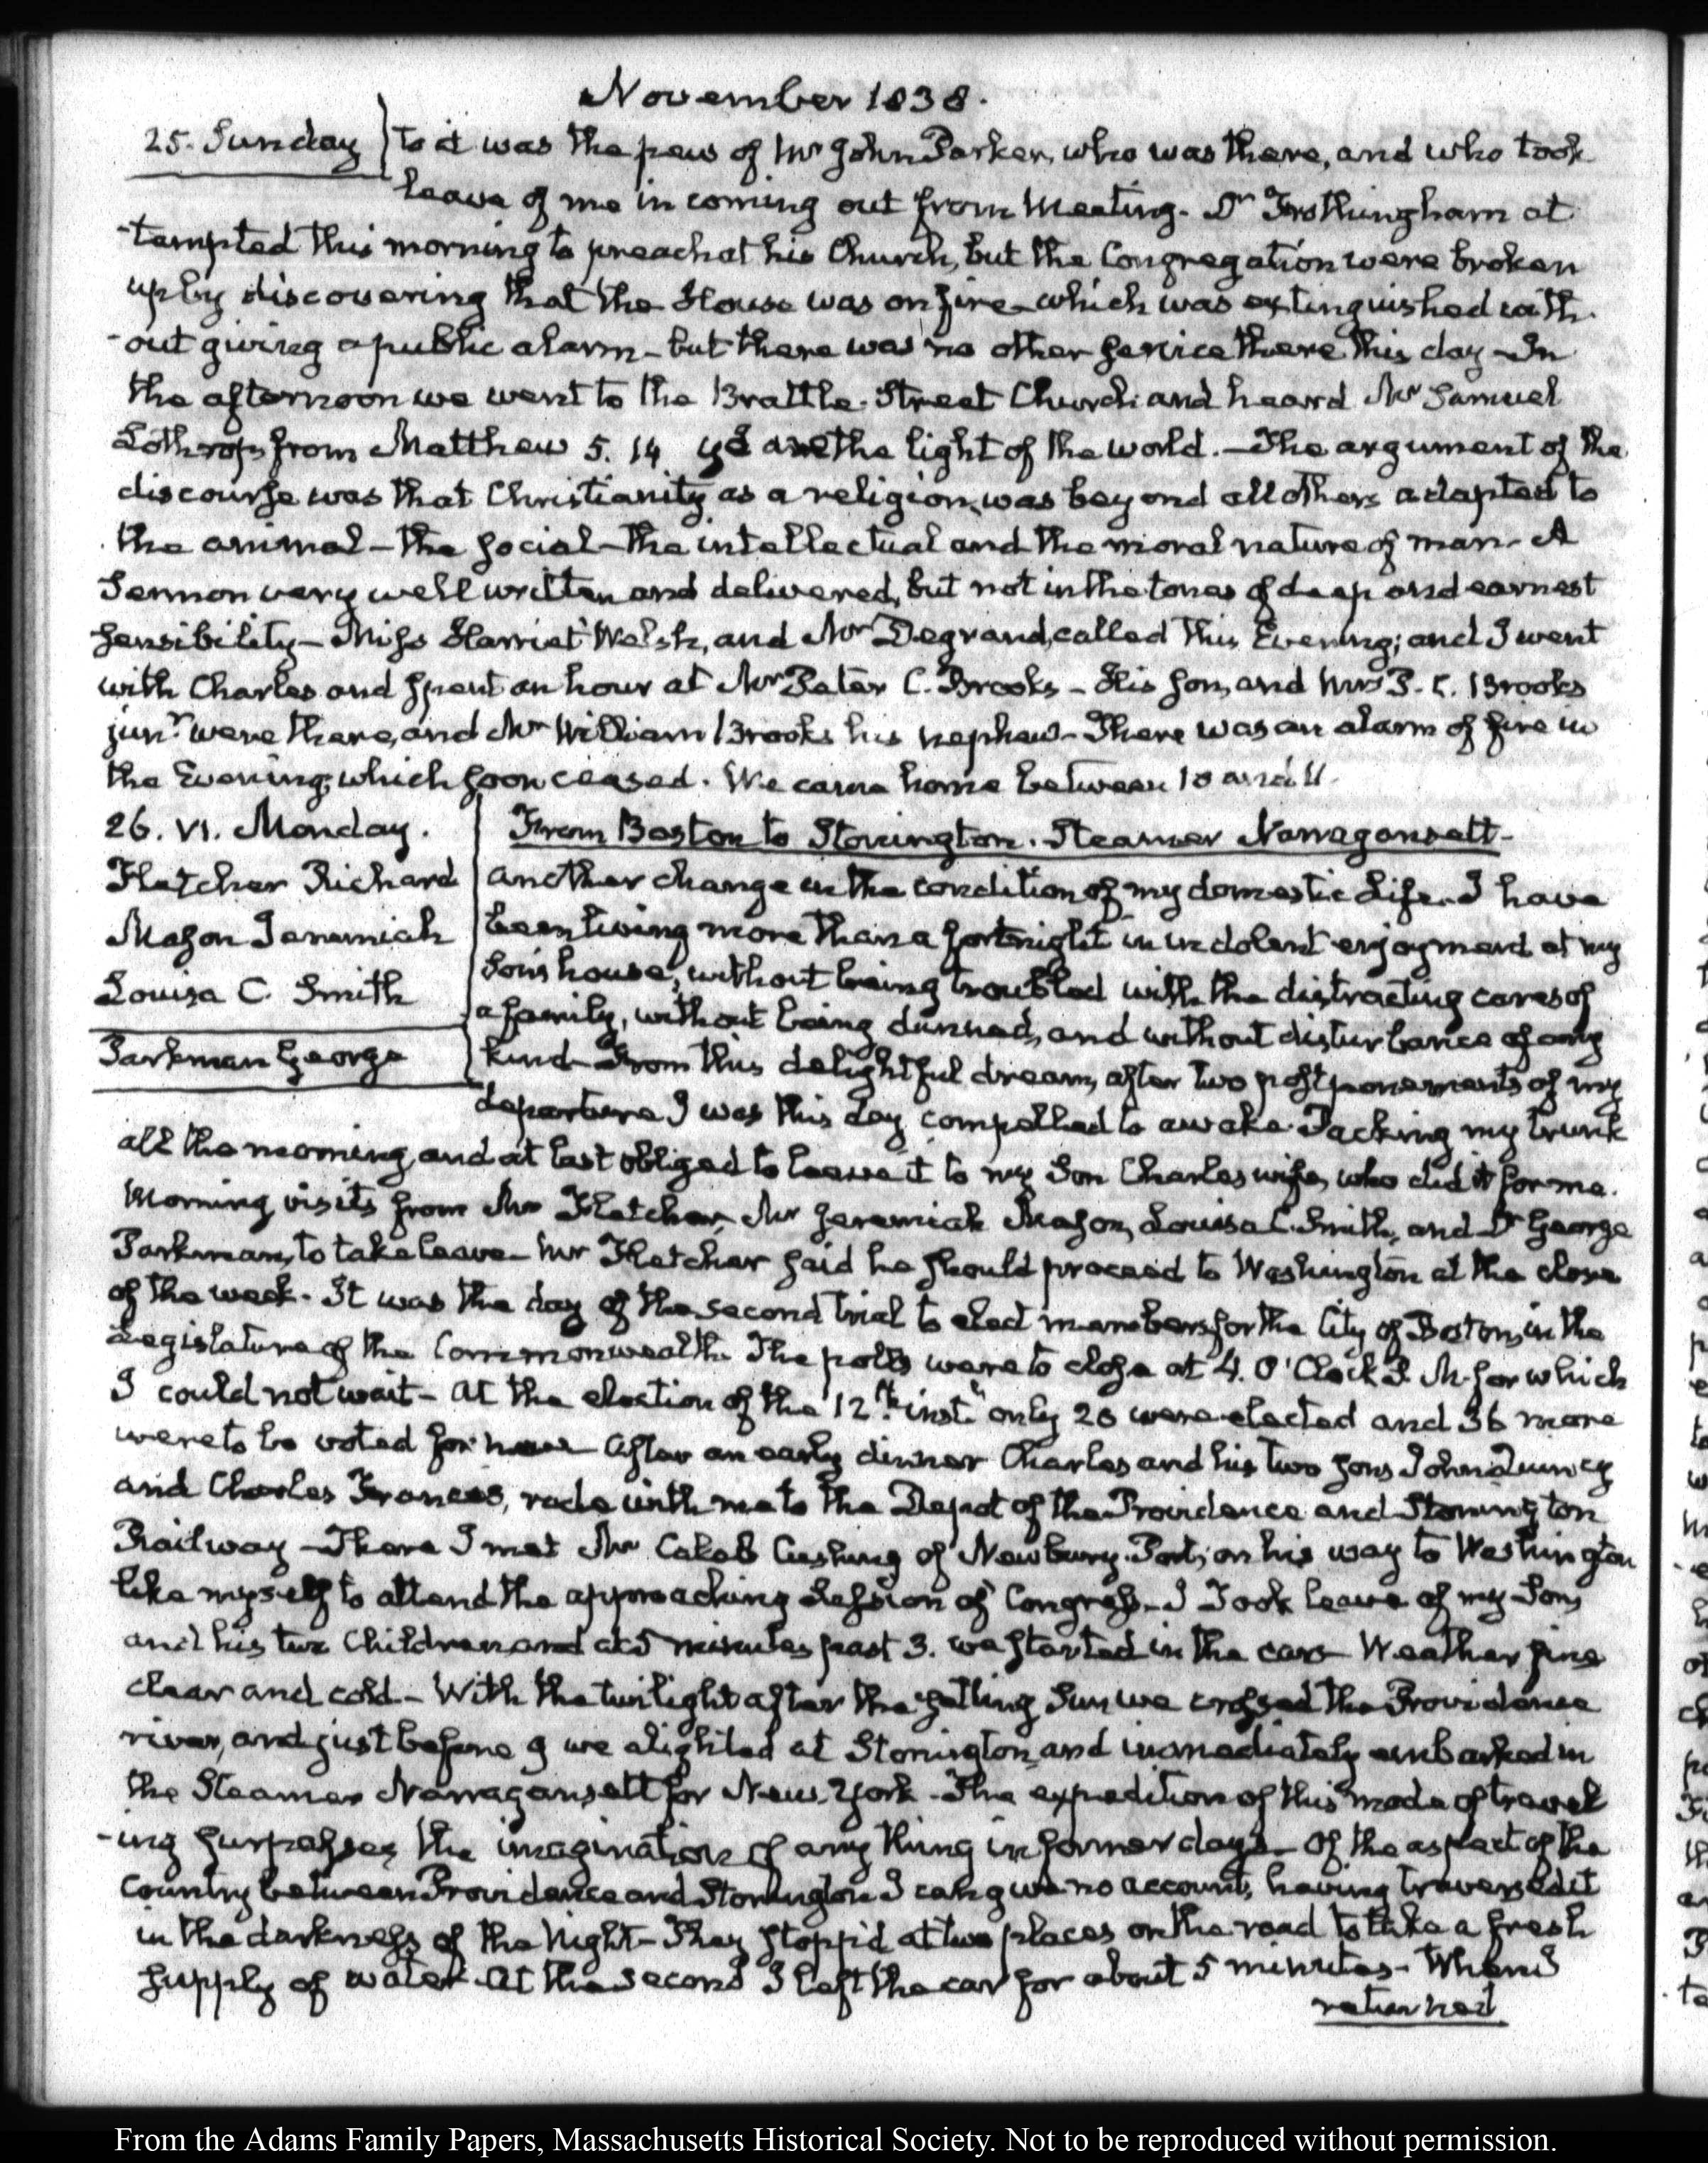 November 1838.
25. Sunday } to it was the pew of Mr John Parker, who was there, and who took
leave of me in coming out from Meeting. Dr Frothingham at
-tempted this morning to preach at his Church, but the Congregation were broken
up by discovering that the House was on fire which was extinguished with-
-out giving a public alarm — but there was no other service there this day — In
the afternoon we went to the Brattle-Street Church and heard Mr Samuel
Lothrop from Matthew 5. 14 ye are the light of the world. — The argument of the
discourse was that Christianity as a religion, was beyond all others adapted to
the animal — the social — the intellectual and the moral nature of man — A
Sermon very well written and delivered, but not in the tones of deep and earnest
sensibility — Miss Harriet Welsh, and Mr Degrand, called this Evening; and I went
with Charles and spent an hour at Mr Peter C. Brooks — His son, and Mrs P. C. Brooks
junr. were there, and Mr William Brooks his nephew — There was an alarm of fire in
the Evening, which soon ceased. We came home between 10 and 11.
26. VI. Monday.
Fletcher Richard
Mason Jeremiah
Louisa C. Smith
Parkman George
From Boston to Stonington. Steamer Narragansett-
another change in the condition of my domestic Life. I have
been living more than a fortnight in indolent enjoyment at my
Son's house, without being troubled with the distracting cares of
a family, without being dunned, and without disturbance of any
kind — From this delightful dream, after two postponements of my
departure I was this day compelled to awake. Packing my trunk
all the morning, and at last obliged to leave it to my Son Charles wife, who did it for me.
Morning visits from Mr Fletcher, Mr Jeremiah Mason, Louisa C. Smith, and Dr George
Parkman, to take leave — Mr Fletcher said he should proceed to Washington at the close
of the week. It was the day of the second trial to elect members for the City of Boston, in the
Legislature of the Commonwealth. The polls were to close at 4. O'Clock P. M. for which
I could not wait — At the election of the 12th. inst. only 20 were elected and 36 more
were to be voted for now. After an early dinner Charles and his two sons John Quincy
and Charles Francis, rode with me to the Depot of the Providence and Stonington
Railway — There I met Mr Caleb Cushing of Newbury-Port, on his way to Washington
like myself to attend the approaching Session of Congress — I Took leave of my Son,
and his two Children and at 5 minutes past 3. we started in the cars — Weather fine
clear and cold — With the twilight after the setting Sun we crossed the Providence
river, and just before 9 we alighted at Stonington, and immediately embarked in
the Steamer Narragansett for New-York. The expedition of this mode of travel
-ing surpasses the imagination of any thing in former days — Of the aspect of the
Country between Providence and Stonington I can give no account, having traversed it
in the darkness of the Night — They stopp'd at two places on the road to take a fresh
supply of water. At the second I left the car for about 5 minutes — When I
returned
From the Adams Family Papers, Massachusetts Historical Society. Not to be reproduced without permission.